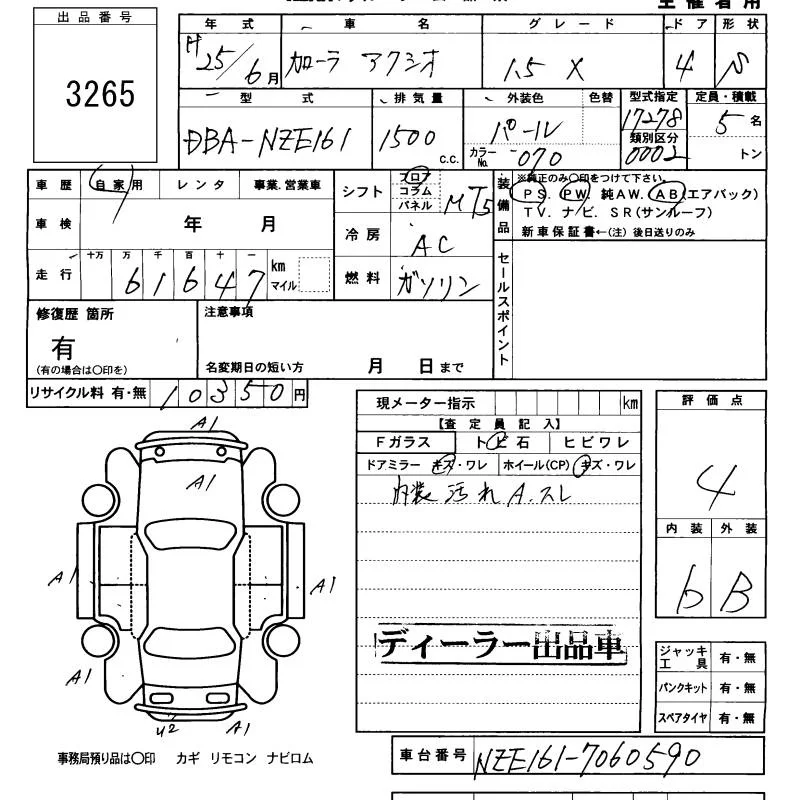 出品番号
3265
年式 車名 グレード ドア 形状
H25/6月 カローラ アクシオ 1.5 X 4 S
型式 排気量 外装色 色替 型式指定 定員・積載
DBA-NZE161 1500 c.c. パール 17278 5名
カラーNo. 070 類別区分 0002 トン
車歴 自家用 レンタ 事業.営業車
シフト フロア コラム パネル MT5
装備品
※純正のみ○印をつけて下さい。
PS. PW. 純AW. AB(エアバック)
TV. ナビ. SR(サンルーフ)
新車保証書←(注) 後日送りのみ
車検 年 月
冷房 AC
走行 十万 万 千 百 十 一
61647 km マイル
燃料 ガソリン
セールスポイント
修復歴 箇所
有
(有の場合は○印を)
注意事項
名変期日の短い方 月 日まで
リサイクル料 有・無 10350円
現メーター指示 km
【査定員記入】
Fガラス トビ石 ヒビワレ
ドアミラー キズ・ワレ ホイール(CP) キズ・ワレ
内装 汚れ A.スレ
評価点
4
内装 外装
b B
A1
A1
A1
A1
A1
U2
A1
ディーラー出品車
ジャッキ工具 有・無
パンクキット 有・無
スペアタイヤ 有・無
事務局預り品は○印 カギ リモコン ナビロム
車台番号 NZE161-7060590